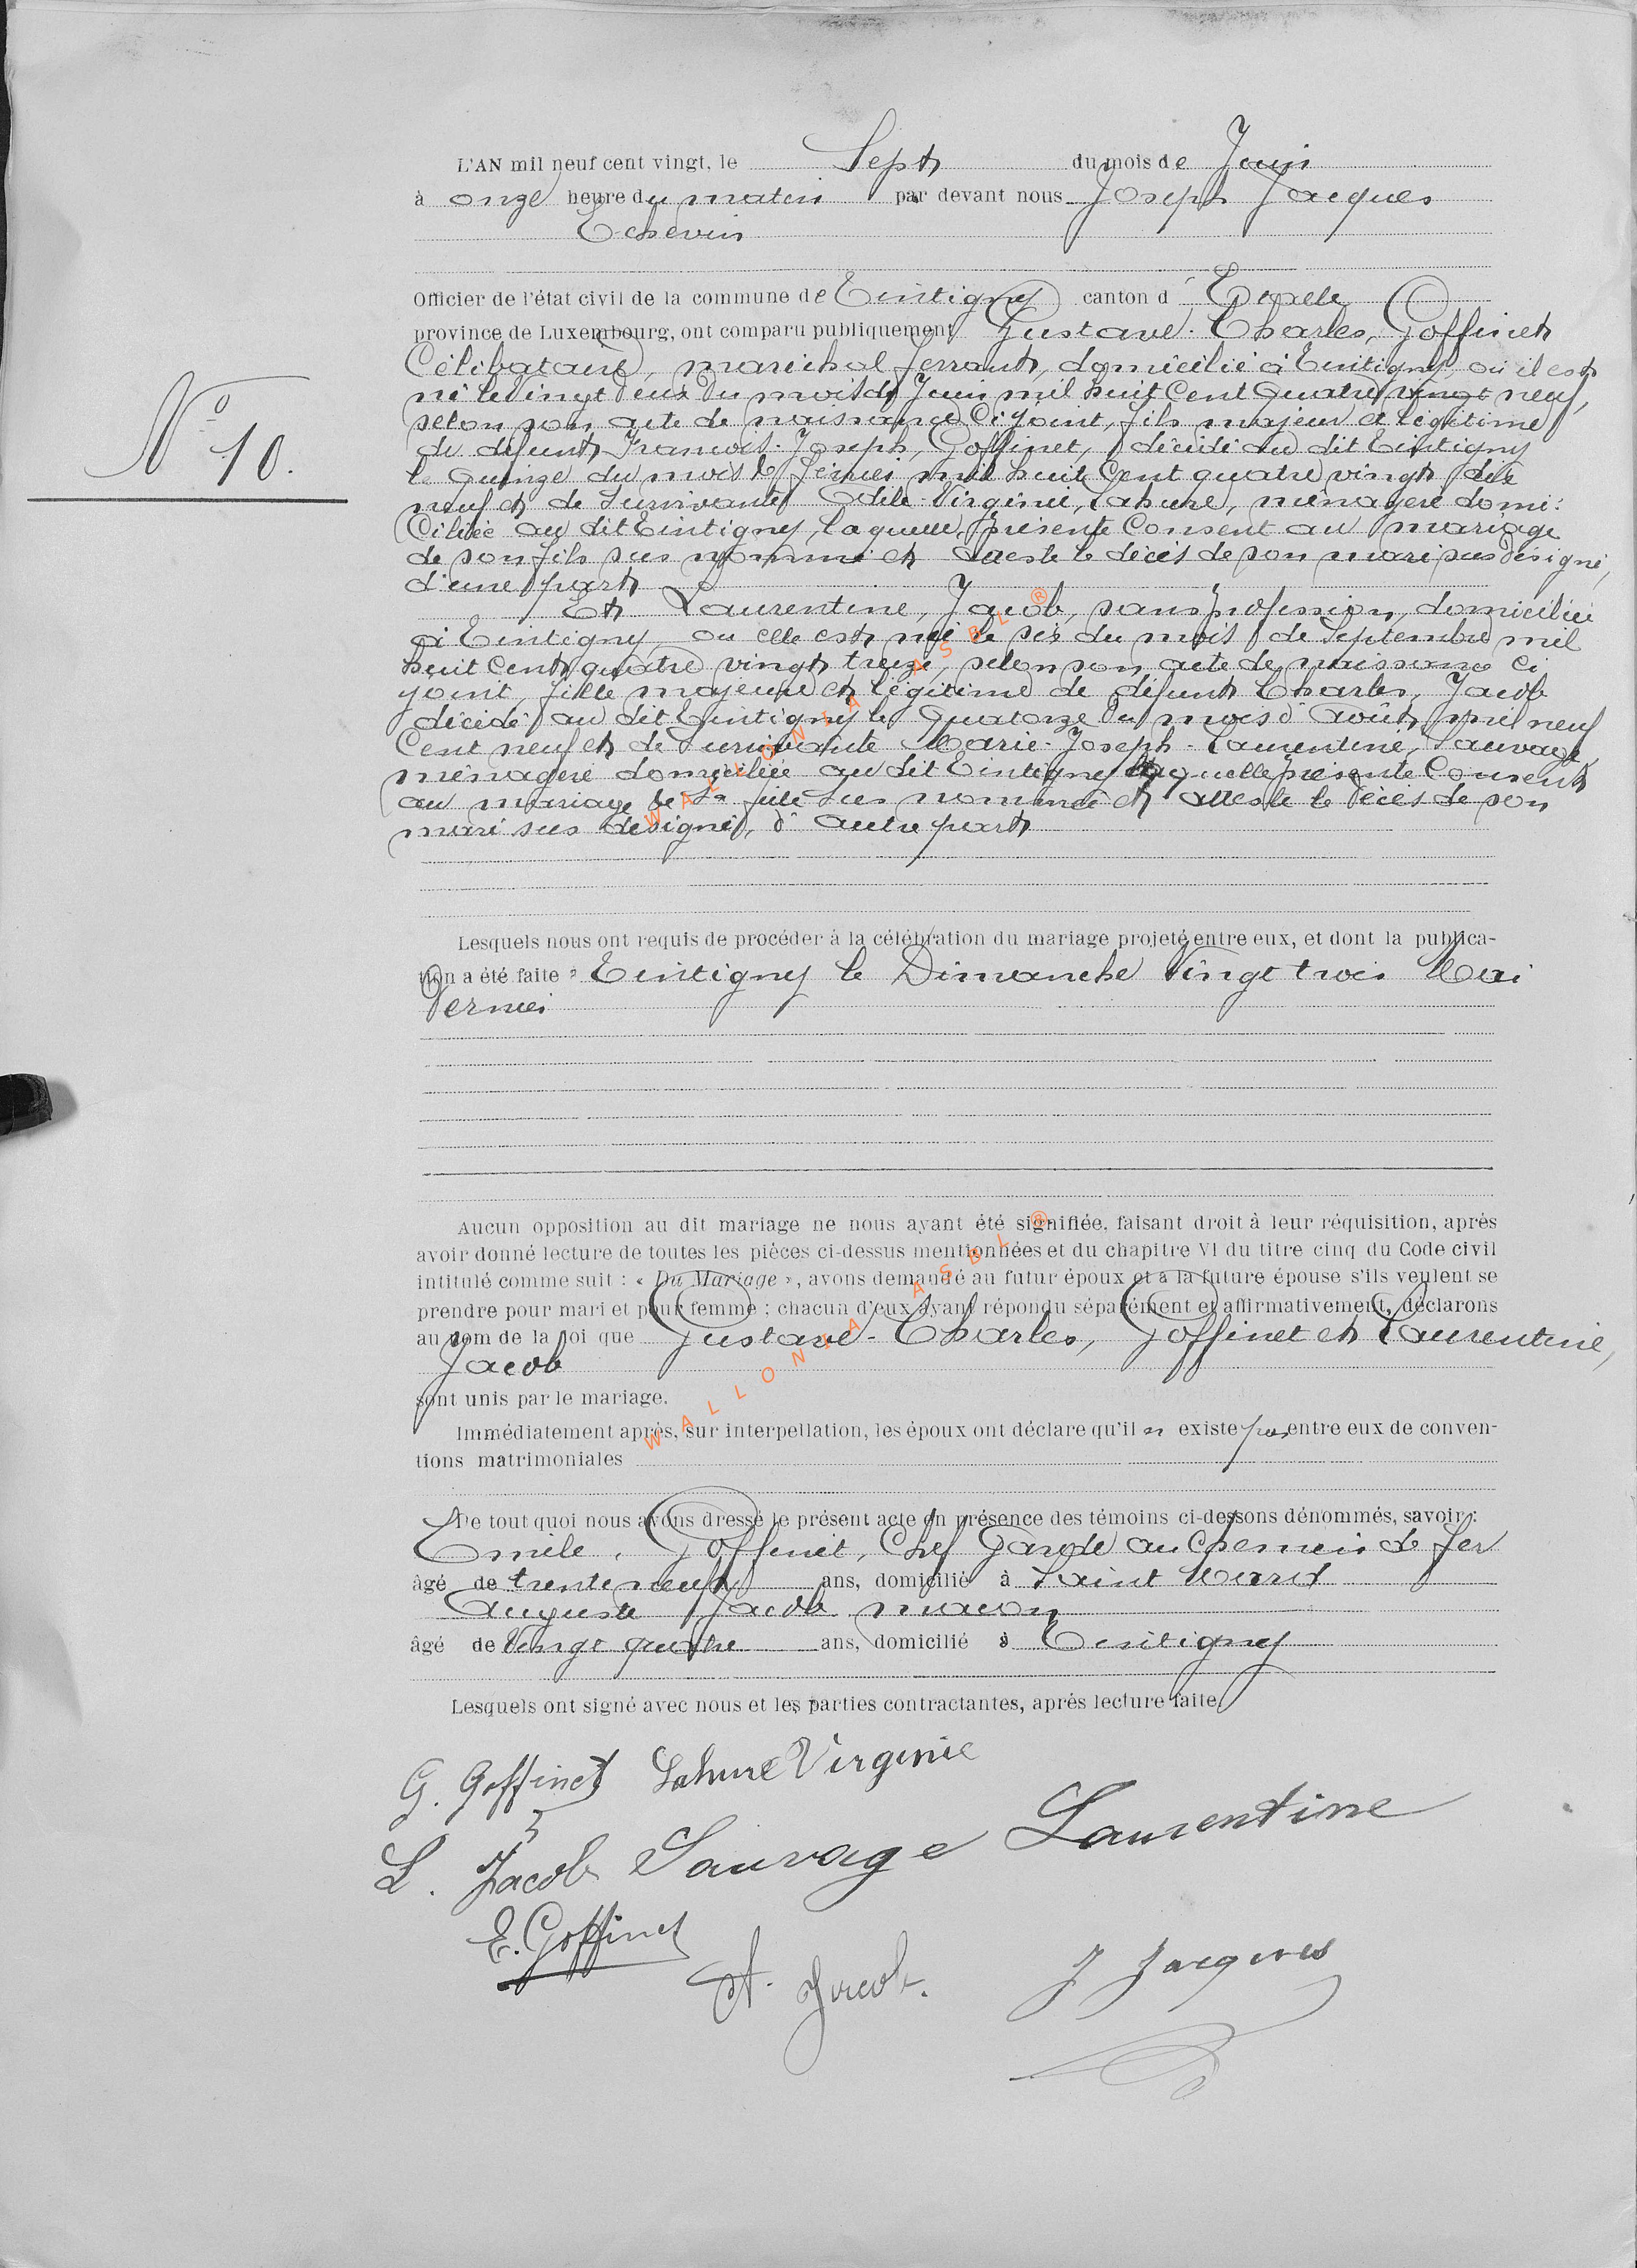 L'AN mil neuf cent vingt, le Sept du mois de Juin
à onze heure du matin par devant nous Joseph Jacques
Echevin
Officier de l'état civil de la commune de Tintigny canton d' Etalle
province de Luxembourg, ont comparu publiquement Gustave-Charles, Goffinet
Célibataire, maréchal ferrant, domicilié à Tintigny, où il est
né le Vingt deux du mois de Juin mil huit Cent Quatre vingt neuf,
selon son acte de naissance Ci joint, fils majeur et légitime
de défunt François-Joseph, Goffinet, décédé au dit Tintigny
le Quinze du mois de février mil huit Cent quatre vingt dix
neuf et de Survivante Odile-Virginie, Lahure, ménagère domi:
Ciliée au dit Tintigny, laquelle présente Consent au mariage
de son fils sus nommé et atteste le décès de son mari sus désigné,
d'une part
Et Laurentine, Jacob, sans profession, domiciliée
à Tintigny, où elle est née le six du mois de Septembre mil
huit Cent quatre vingt treize, selon son acte de naissance Ci
joint, fille majeure et légitime de défunt Charles, Jacob
décédé au dit Tintigny le Quatorze du mois d'Août mil neuf
Cent neuf et de Survivante Marie-Joseph-Laurentine, Sauvage
ménagère domiciliée au dit Tintigny laquelle présente Consent
au mariage de Sa fille Sus nommée et atteste le décès de son
mari sus désigné, d'autre part
N° 10.
Lesquels nous ont requis de procéder à la célébration du mariage projeté entre eux, et dont la publica-
tion a été faite à Tintigny le Dimanche Vingt trois Mai
Dernier
Aucun opposition au dit mariage ne nous ayant été signifiée, faisant droit à leur réquisition, après
avoir donné lecture de toutes les pièces ci-dessus mentionnées et du chapitre VI du titre cinq du Code civil
intitulé comme suit : « Du Mariage », avons demandé au futur époux et à la future épouse s'ils veulent se
prendre pour mari et pour femme : chacun d'eux ayant répondu séparément et affirmativement, déclarons
au nom de la loi que Gustave-Charles, Goffinet et Laurentine,
Jacob
sont unis par le mariage.
Immédiatement après, sur interpellation, les époux ont déclare qu'il n existe pas entre eux de conven-
tions matrimoniales
De tout quoi nous avons dressé le présent acte en présence des témoins ci-dessons dénommés, savoir :
Emile, Goffinet, Chef Garde au Chemin de fer
âgé de trente neuf ans, domicilié à Saint Mard
Auguste Jacob maçon
âgé de Vingt quatre ans, domicilié à Tintigny
Lesquels ont signé avec nous et les parties contractantes, après lecture faite.
G. Goffinet Lahure Virginie
L. Jacob Sauvage Laurentine
E. Goffinet
A. Jacob. J Jacques
WALLONIA ASBL ®
WALLONIA ASBL ®